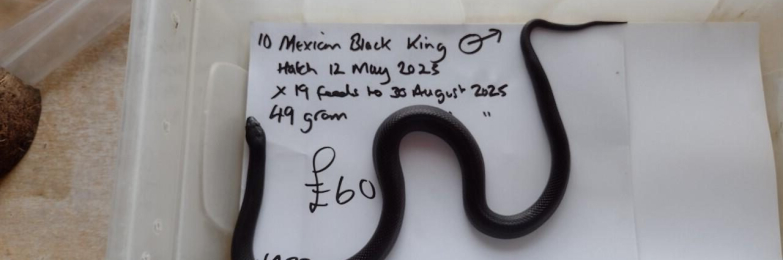 10 Mexican Black King ♂
Hatch 12 May 2025
x 19 feeds to 30 August 2025
49 gram "
£60